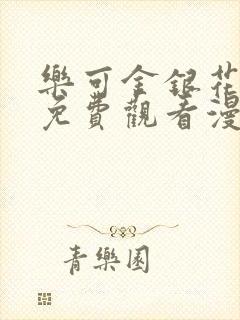 樂可金銀花
免費觀看漫
青樂園